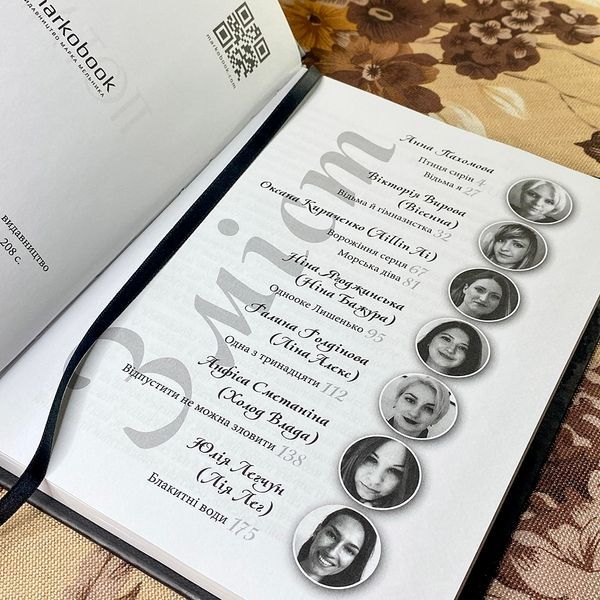 markobook
видавництво марка мельника
markobook.com
видавництво
208 с.
Зміст
Анна Пахомова
Птиця сирін 4
Відьма я 27
Вікторія Вирова
(Вісенна)
Відьма й гімназистка 32
Оксана Кириченко (Aillin Ai)
Ворожіння серця 67
Морська діва 81
Ніна Ягоджинська
(Ніна Бажура)
Одиооке Лишенько 95
Галина Голдінова
(Ліна Алекс)
Одна з тринадцяти 112
Анфіса Сметаніна
(Холод Влада)
Відпустити не можна зловити 138
Юлія Легчун
(Лія Лег)
Блакитні води 175